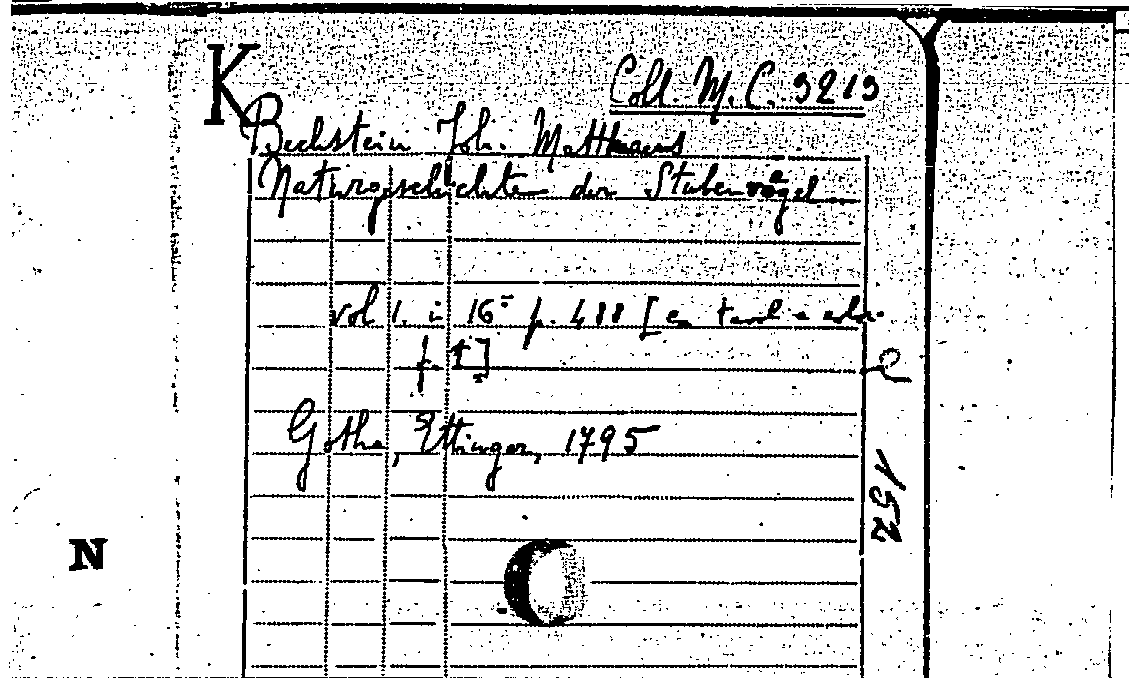 K
Coll. M. C. 3213
Bechstein Joh. Matthaeus
Naturgeschichte der Stubenvögel
vol 1. in 16° p. 488 [con tavole a color.
f. 4]
Gotha, Ettinger, 1795
152
N